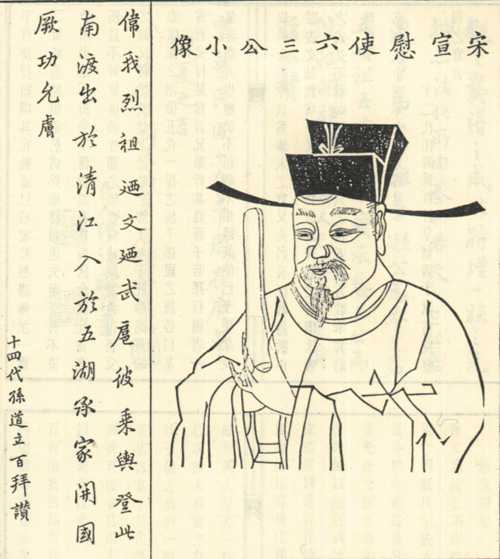 宋宣慰使六三公小像
偉我烈祖迺文迺武扈彼乘輿登此
南渡出於清江入於五湖承家開國
厥功允膚
十四代孫道立百拜讚